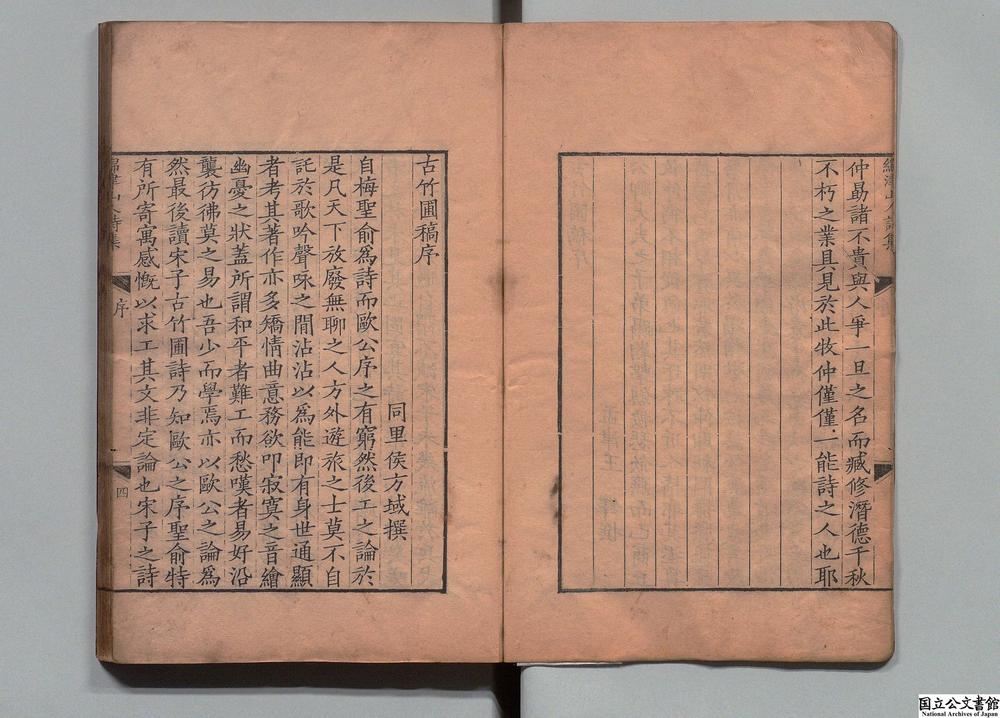 綿津山人詩集
仲勗諸不貴與人爭一旦之名而臧修潛德千秋
不朽之業具見於此牧仲僅僅一能詩之人也耶
古竹圃稿序
同里侯方域撰
自梅聖俞爲詩而歐公序之有窮然後工之論於
是凡天下放廢無聊之人方外遊旅之士莫不自
託於歌吟聲咏之間沾沾以爲能即有身世通顯
者考其著作亦多矯情曲意務欲叩寂寞之音繪
幽憂之狀蓋所謂和平者難工而愁嘆者易好沿
襲彷彿莫之易也吾少而學焉亦以歐公之論爲
然最後讀宋子古竹圃詩乃知歐公之序聖俞特
有所寄寓感慨以求工其文非定論也宋子之詩
綿津山人詩集
序
四
国立公文書館
National Archives of Japan